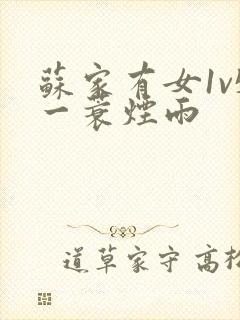 蘇家有女1v
一蓑煙雨
道草家守高松